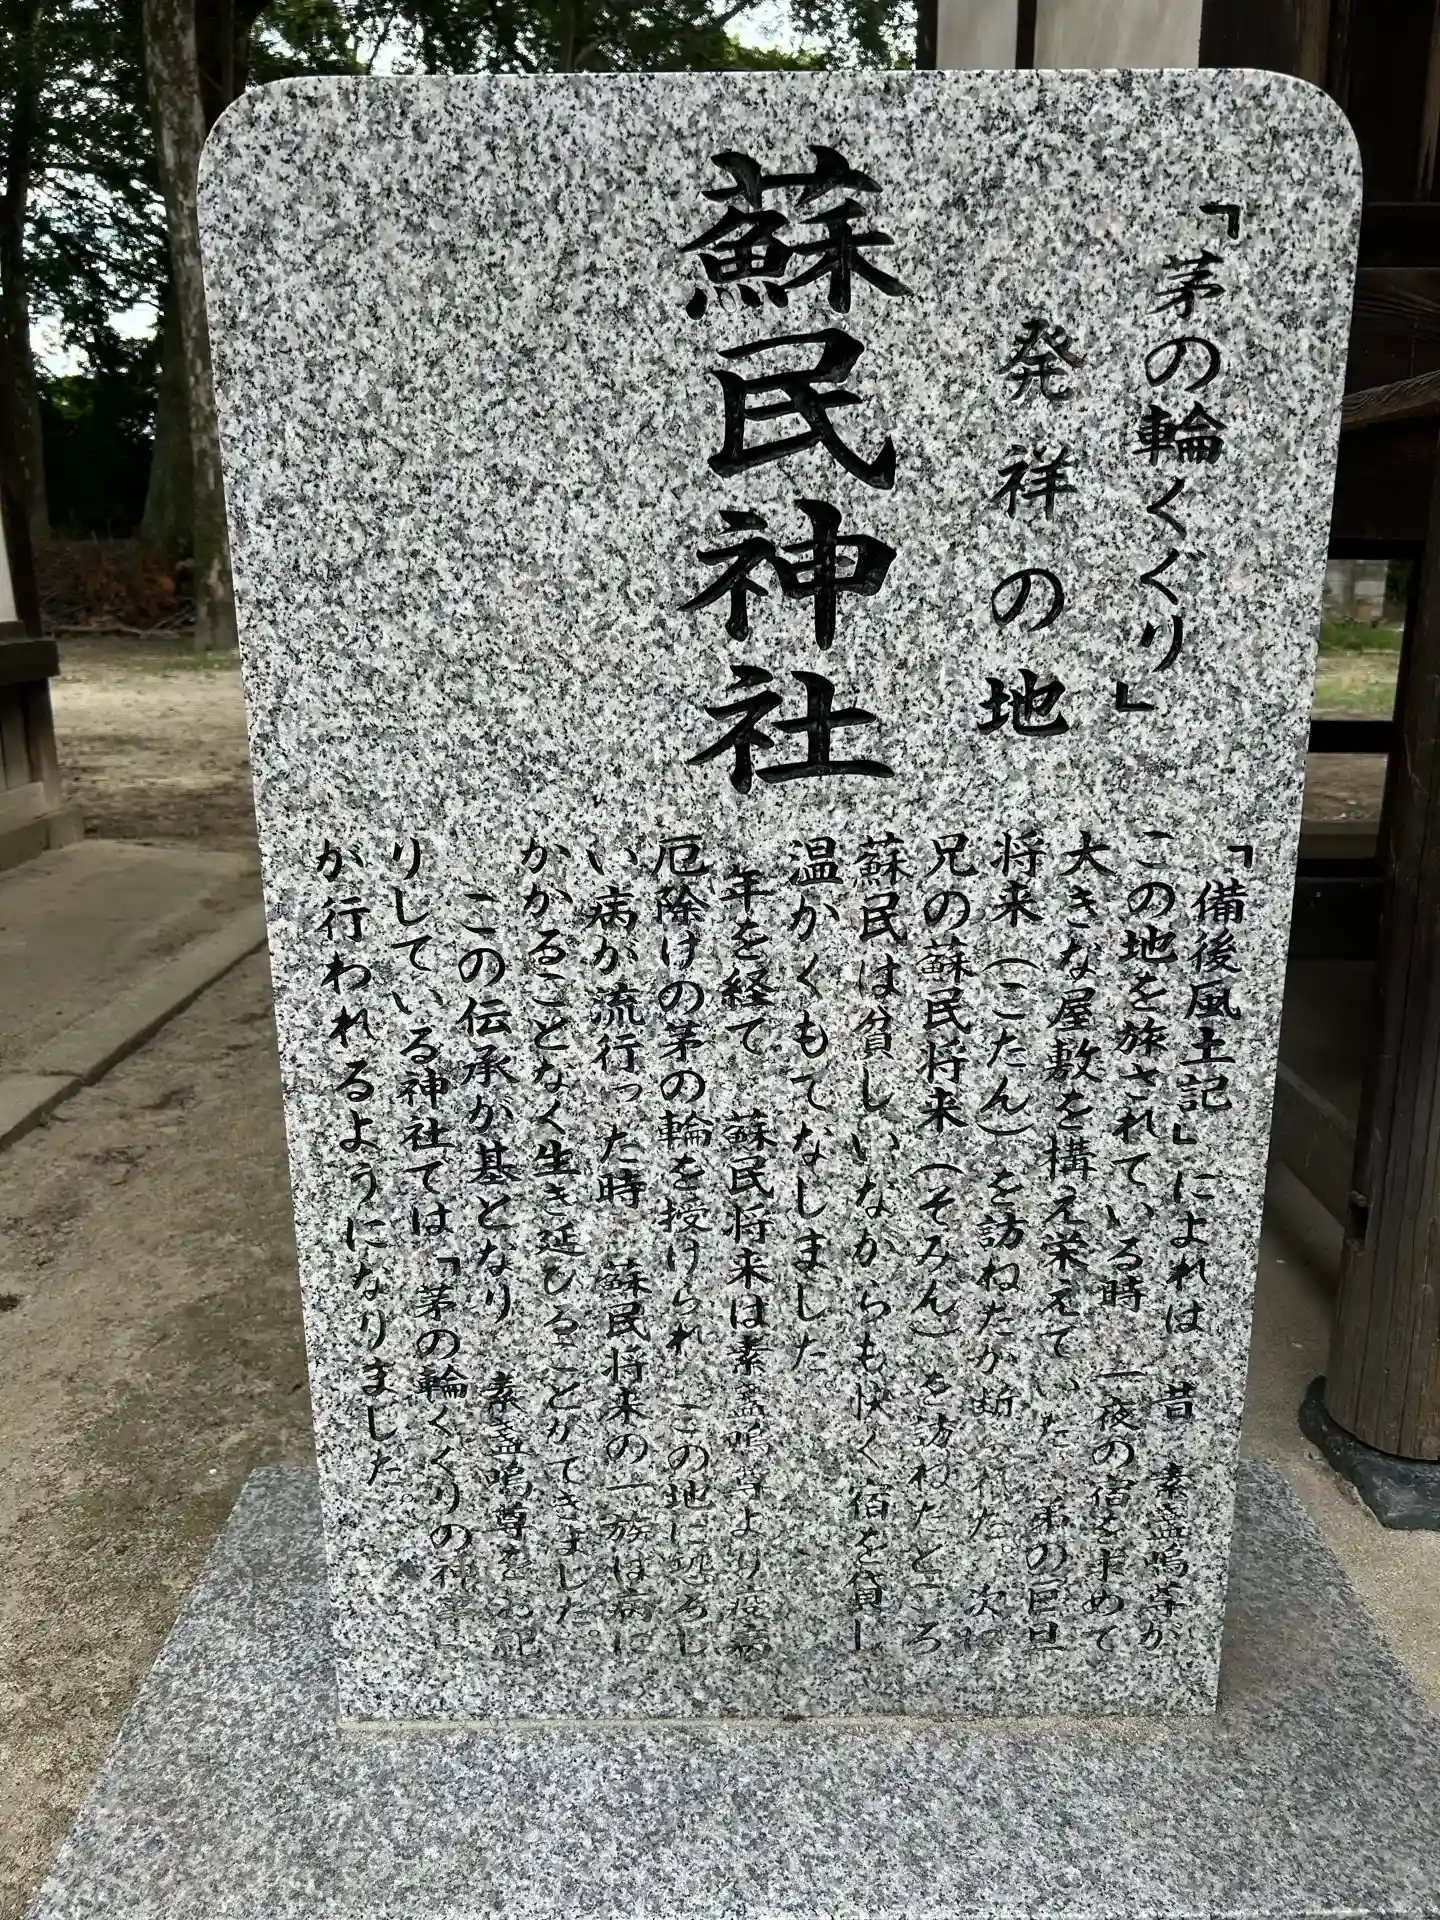 「茅の輪くぐり」
発祥の地
蘇民神社
「備後風土記」によれば 昔 素盞嗚尊が
この地を旅されている時 一夜の宿を求めて
大きな屋敷を構え栄えていた 弟の巨旦
将来（こたん）を訪ねたが断られた。次に
兄の蘇民将来（そみん）を訪ねたところ
蘇民は貧しいながらも快く宿を貸し
温かくもてなしました
年を経て 蘇民将来は素盞嗚尊より疫病
厄除けの茅の輪を授けられ この地に恐ろし
い病が流行った時 蘇民将来の一族は病に
かかることなく生き延びることができました。
この伝承が基となり 素盞嗚尊をお祀
りしている神社では「茅の輪くぐりの神事」
が行われるようになりました